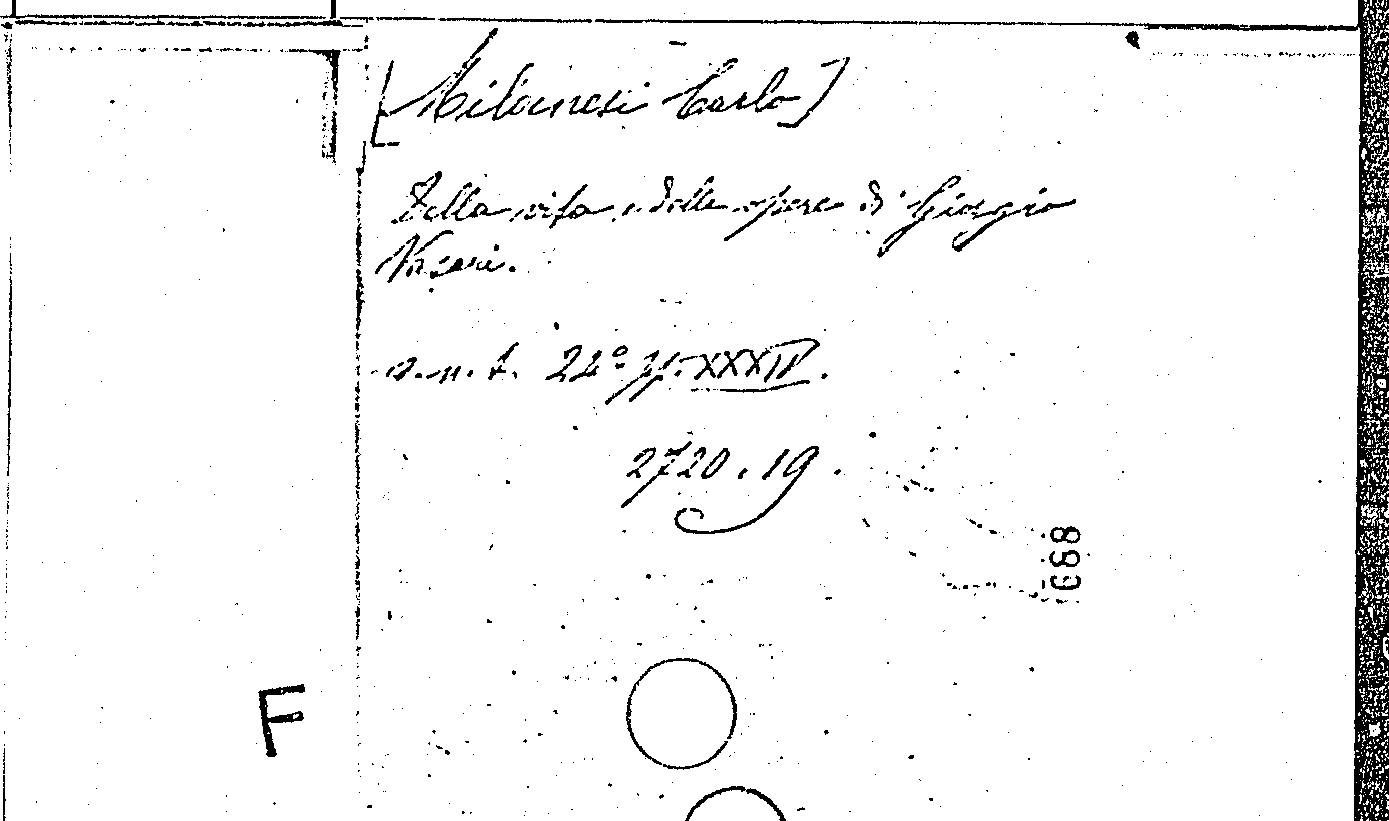 [Milanesi Carlo]
Della vita e delle opere di Giorgio
Vasari.
a.n.t. 24° pp. XXXIV.
2720.19.
668
F